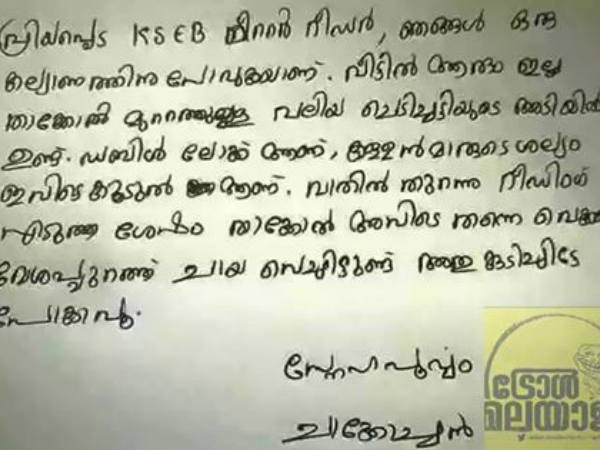 പ്രിയപ്പെട്ട KSEB മീറ്റർ റീഡർ, ഞങ്ങൾ ഒരു
കല്യാണത്തിനു പോവുകയാണ്. വീട്ടിൽ ആരും ഇല്ല
താക്കോൽ മുറ്റത്തുള്ള വലിയ ചെടിച്ചട്ടിയുടെ അടിയിൽ
ഉണ്ട്. ഡബിൾ ലോക്ക് ആണ്, കള്ളൻമാരുടെ ശല്യം
ഇവിടെ കൂടുതൽ ആണ്. വാതിൽ തുറന്നു റീഡിങ്
എടുത്ത ശേഷം താക്കോൽ അവിടെ തന്നെ വെക്കുക
മേശപ്പുറത്ത് ചായ വെച്ചിട്ടുണ്ട് അതു കുടിച്ചിട്ടേ
പോകാവൂ.
സ്നേഹപൂർവ്വം
ചാക്കോച്ചൻ
ട്രോൾ
മലയാളം